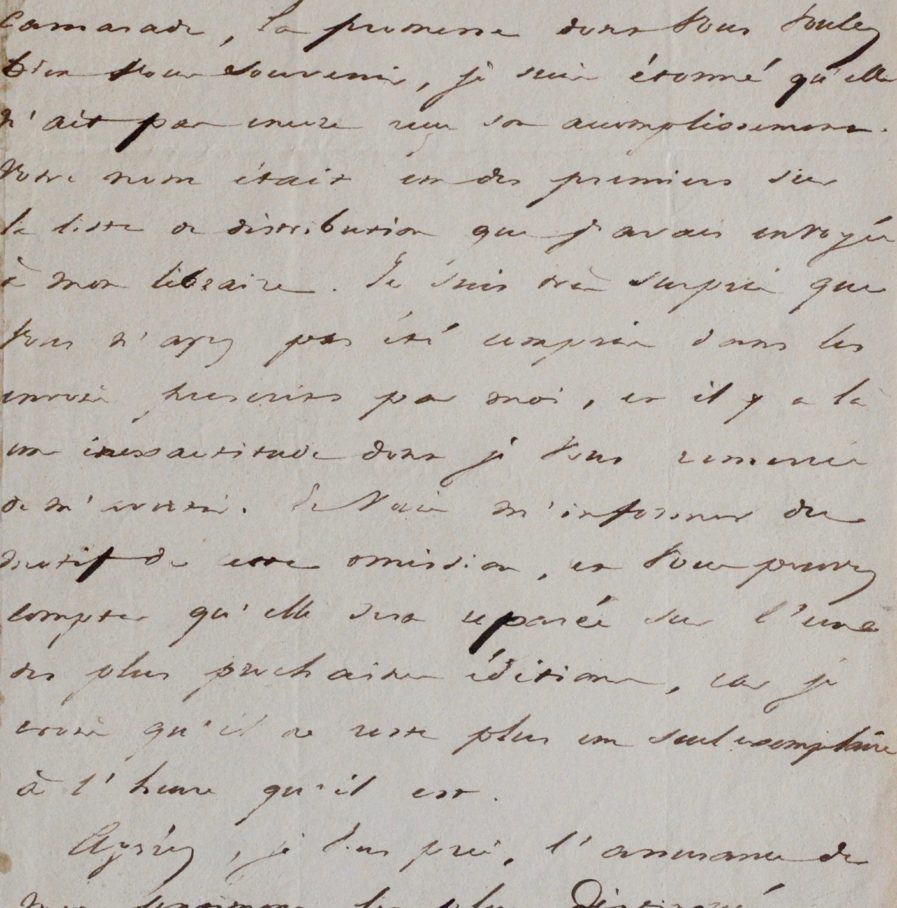 camarade, la promesse dont vous voulez
bien vous souvenir, je suis étonné qu'elle
n'ait pas encore reçu son accomplissement.
Votre nom était un des premiers sur
la liste de distribution que j'avais envoyée
à mon libraire. Je suis très surpris que
vous n'ayez pas été compris dans les
envois prescrits par moi, et il y a là
une inexactitude dont je vous remercie
de m'avertir. Je vais m'informer du
motif de cette omission, et vous pouvez
compter qu'elle sera réparée sur l'une
des plus prochaines éditions, car je
crois qu'il ne reste plus un seul exemplaire
à l'heure qu'il est.
Agréez, je vous prie, l'assurance de
mes sentiments les plus distingués